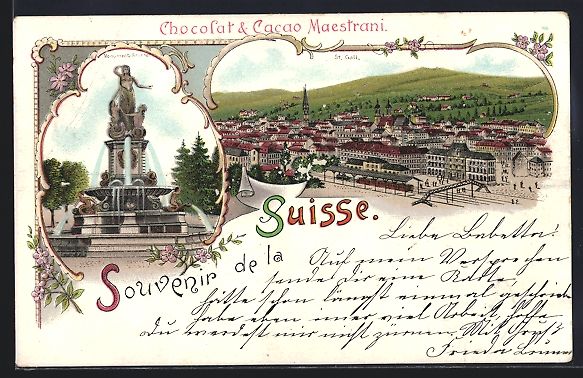 Chocolat & Cacao Maestrani.
St. Gall.
Souvenir de la Suisse.
Liebe Babetta!
Auf mein Versprechen
sende dir eine Karte,
hätte schon längst einmal geschrieben
habe eben immer viel Arbeit, hoffe
du werdest mir nicht zürnen. Mit Gruss
Frieda